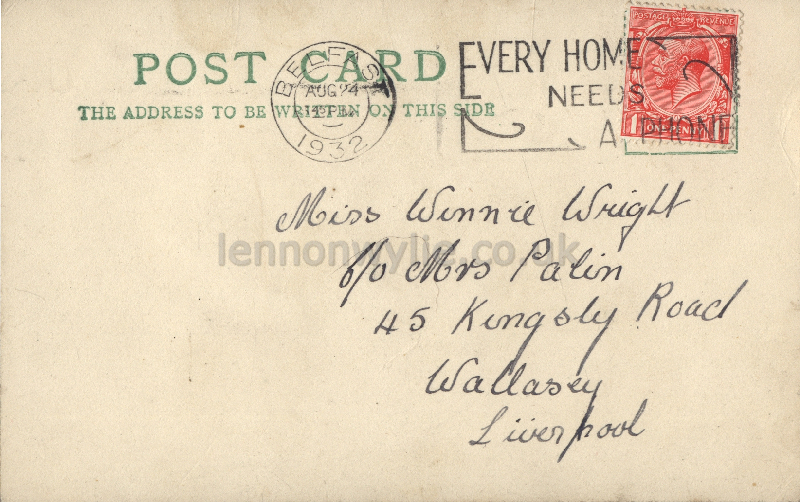 POST CARD
THE ADDRESS TO BE WRITTEN ON THIS SIDE
BELFAST
AUG 24
1932
EVERY HOME
NEEDS
A PHONE
POSTAGE REVENUE
ONE PENNY
Miss Winnie Wright
c/o Mrs Palin
45 Kingsly Road
Wallasey
Liverpool
lennonwylie.co.uk